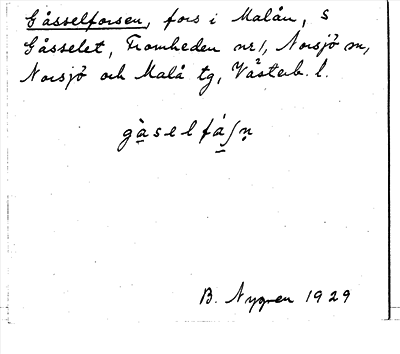 Gåsselforsen, fors i Malån, S
Gåsselet, Fromheden nr 1, Norsjö sn,
Norsjö och Malå tg, Västerb. l.
2
gàselfá∫n̥
B. Nygren 1929